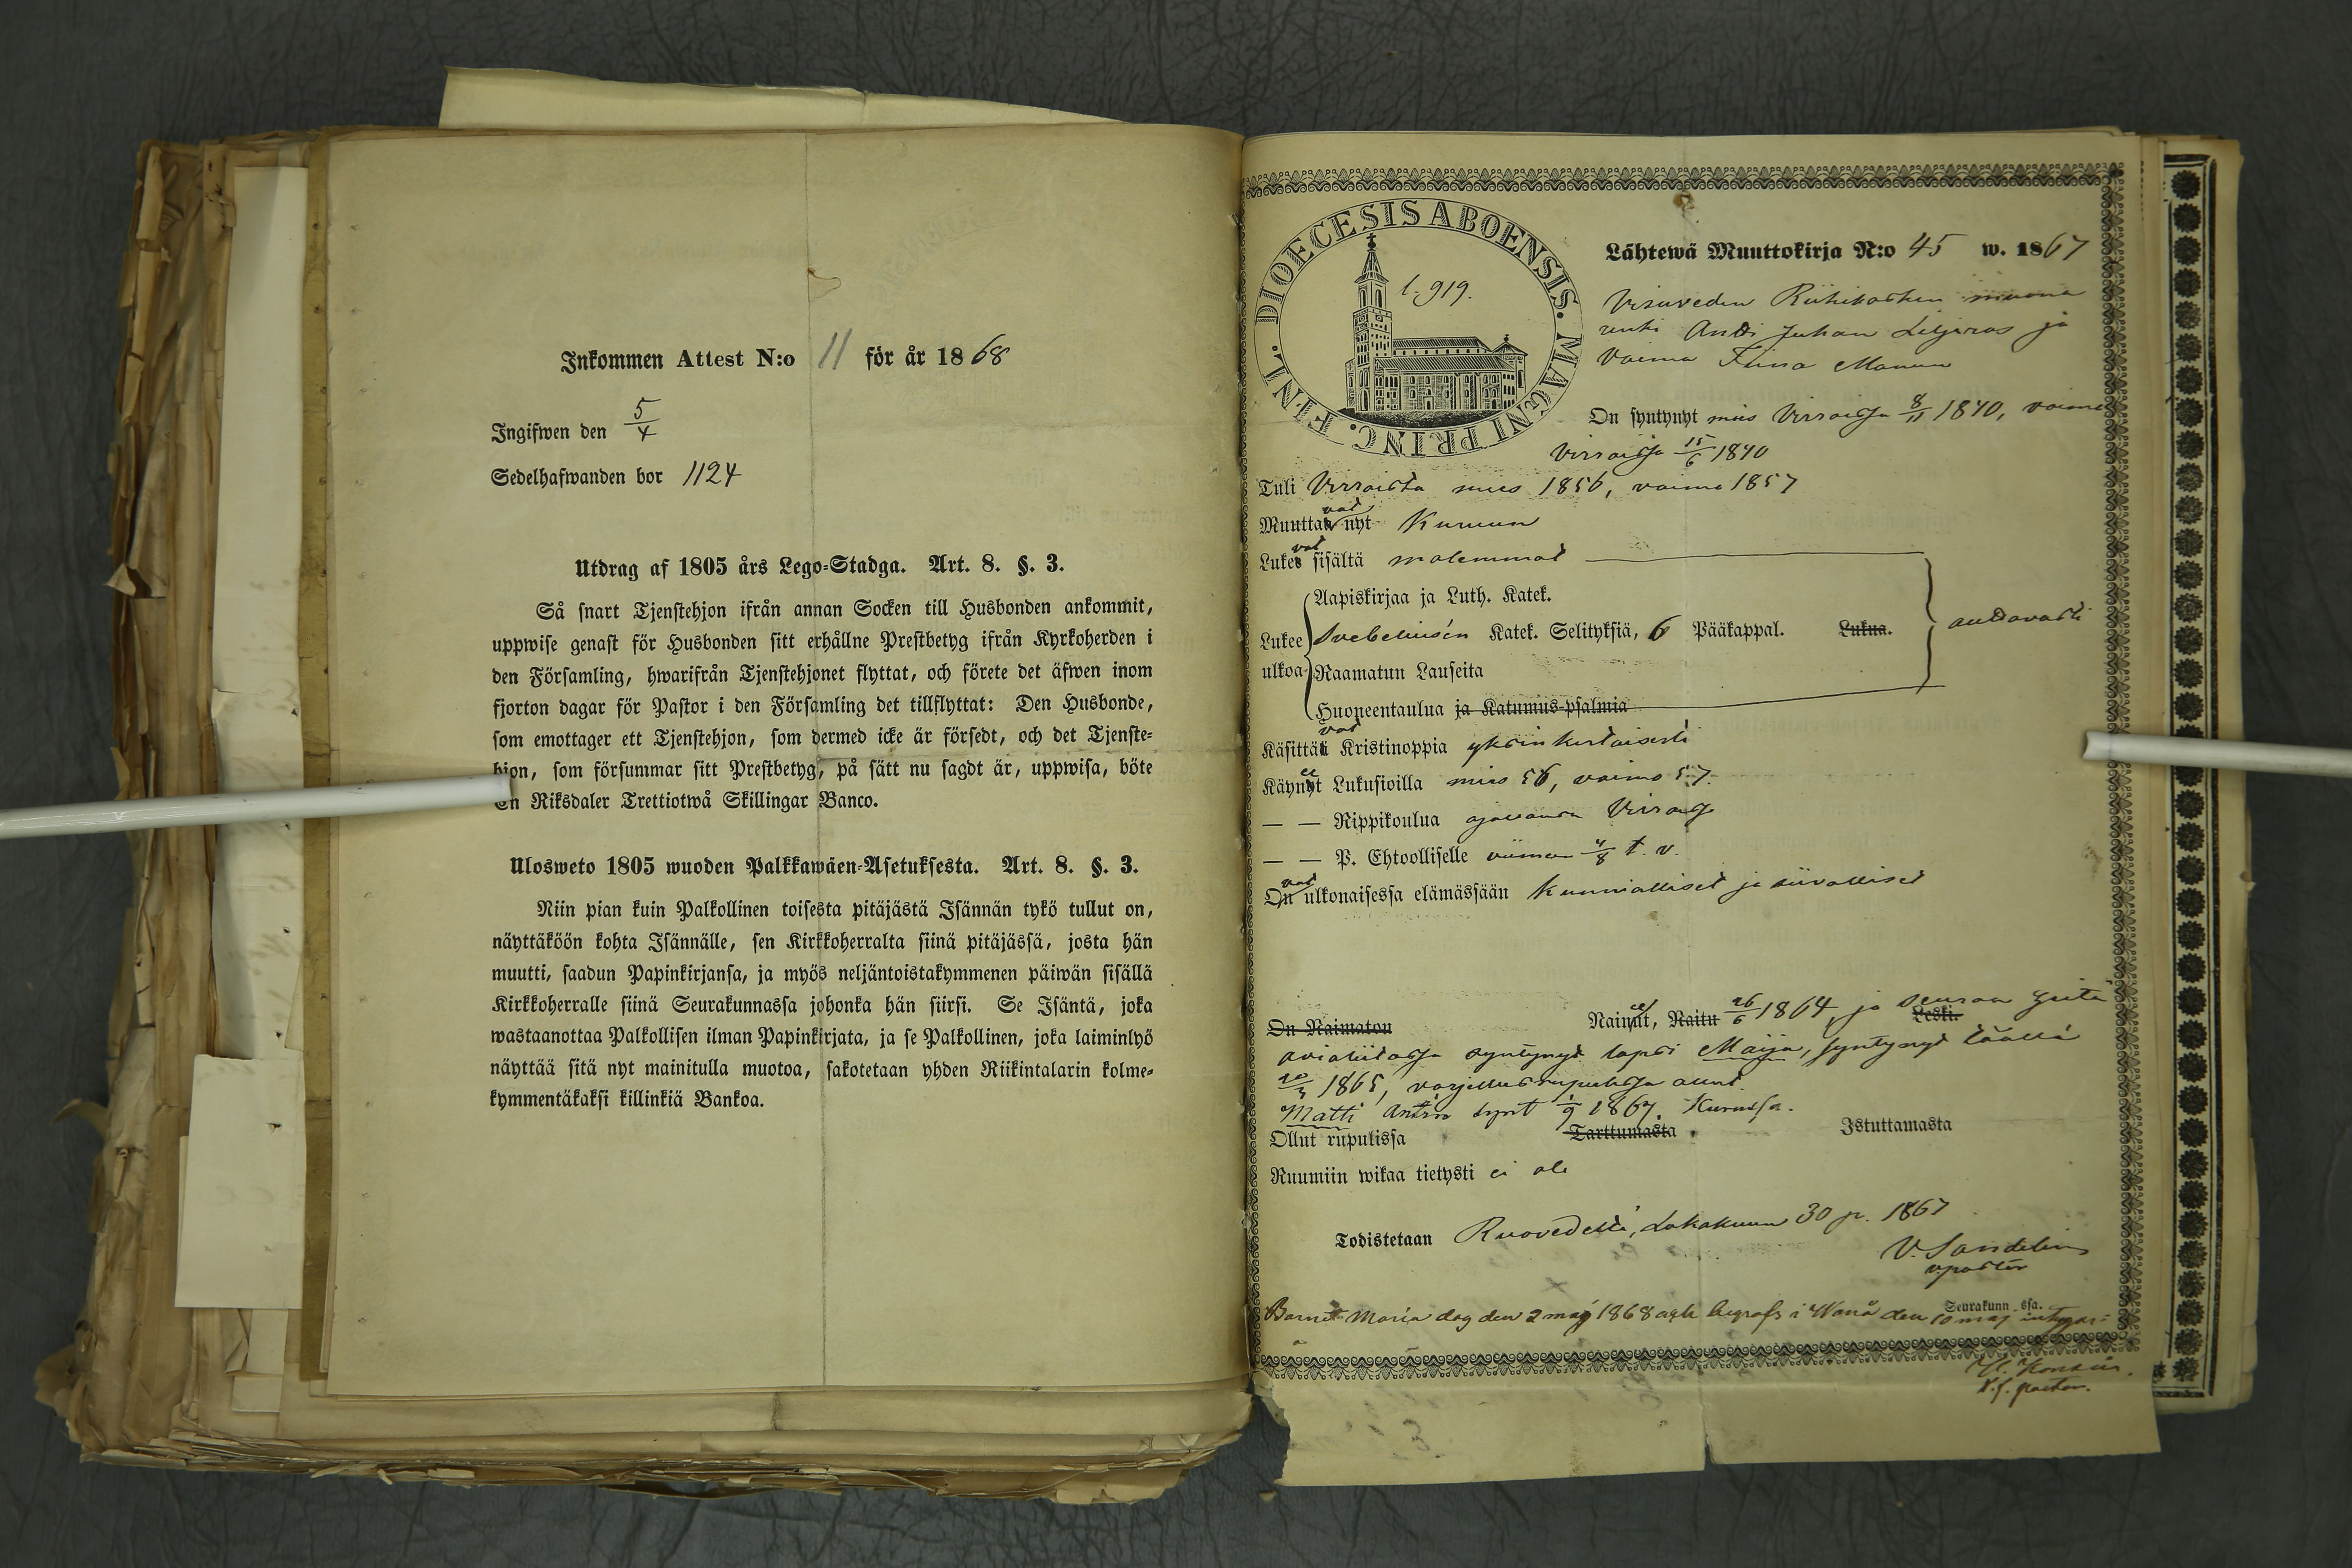 Inkommen Attest N:o 11 för år 1868
Ingifwen den 5/4
Sedelhafwanden bor 1124
Utdrag af 1805 års Lego-Stadga. Art. 8. §. 3.
Så snart Tjenstehjon ifrån annan Socken till Husbonden ankommit,
uppwise genast för Husbonden sitt erhållne Prestbetyg ifrån Kyrkoherden i
den Församling, hwarifrån Tjenstehjonet flyttat, och förete det äfwen inom
fjorton dagar för Pastor i den Församling det tillflyttat: Den Husbonde,
som emottager ett Tjenstehjon, som dermed icke är försedt, och det Tjenste-
hjon, som försummar sitt Prestbetyg, på sätt nu sagdt är, uppwisa, böte
En Riksdaler Trettiotwå Skillingar Banco.
Ulosweto 1805 wuoden Palkkawäen-Asetuksesta. Art. 8. §. 3.
Niin pian kuin Palkollinen toisesta pitäjästä Isännän tykö tullut on,
näyttäköön kohta Isännälle, sen Kirkkoherralta siinä pitäjässä, josta hän
muutti, saadun Papinkirjansa, ja myös neljäntoistakymmenen päiwän sisällä
Kirkkoherralle siinä Seurakunnassa johonka hän siirsi. Se Isäntä, joka
wastaanottaa Palkollisen ilman Papinkirjata, ja se Palkollinen, joka laiminlyö
näyttää sitä nyt mainitulla muotoa, sakotetaan yhden Riikintalarin kolme-
kymmentäkaksi killinkiä Bankoa.
DIOECESIS ABOENSIS. MAGNI PRINC. FINL.
l. 919.
Lähtewä Muuttokirja N:o 45 w. 1867
Visuveden Riihikosken muona
renki Antti Juhan Liljeroos ja
Vaimo Tiina
On syntynyt mies Virroissa 8/11 1840, vaimo
Virroissa 15/6 1840
Tuli Virroista mies 1856, vaimo 1857
Muuttavat nyt Kuruun
Lukevat sisältä molemmat
Aapiskirjaa ja Luth. Katek.
Lukee ulkoa Svebeliusén Katek. Selityksiä, 6 Pääkappal. Lukua. auttavasti
Raamatun Lauseita
Huoneentaulua ja Katumus-psalmia
Käsittävät Kristinoppia yksinkertaisesti
Käyneet Lukusioilla mies 56, vaimo 57.
— — Rippikoulua Virroissa
— — P. Ehtoolliselle viimen 4/8 t. v.
Ovat ulkonaisessa elämässään kunnialliset ja siivolliset
On Naimaton Naineet, Naitu 26/6 1864, ja seuraa heitä Leski.
avioliitossa syntynyt lapsi Maija, syntynyt täällä
20/3 1865,
Matti Antin synt 1/9 1867. Kurussa.
Ollut rupulissa Tarttumasta Istuttamasta
Ruumiin wikaa tietysti ei ole
Todistetaan Ruovedellä, Lokakuun 30 p. 1867
V. Sandelin
vpastor
Seurakunn ssa.
Barnet Maria dog den 2 maj 1868 och begrafs i den 10 maj intygar:
v. pastor.